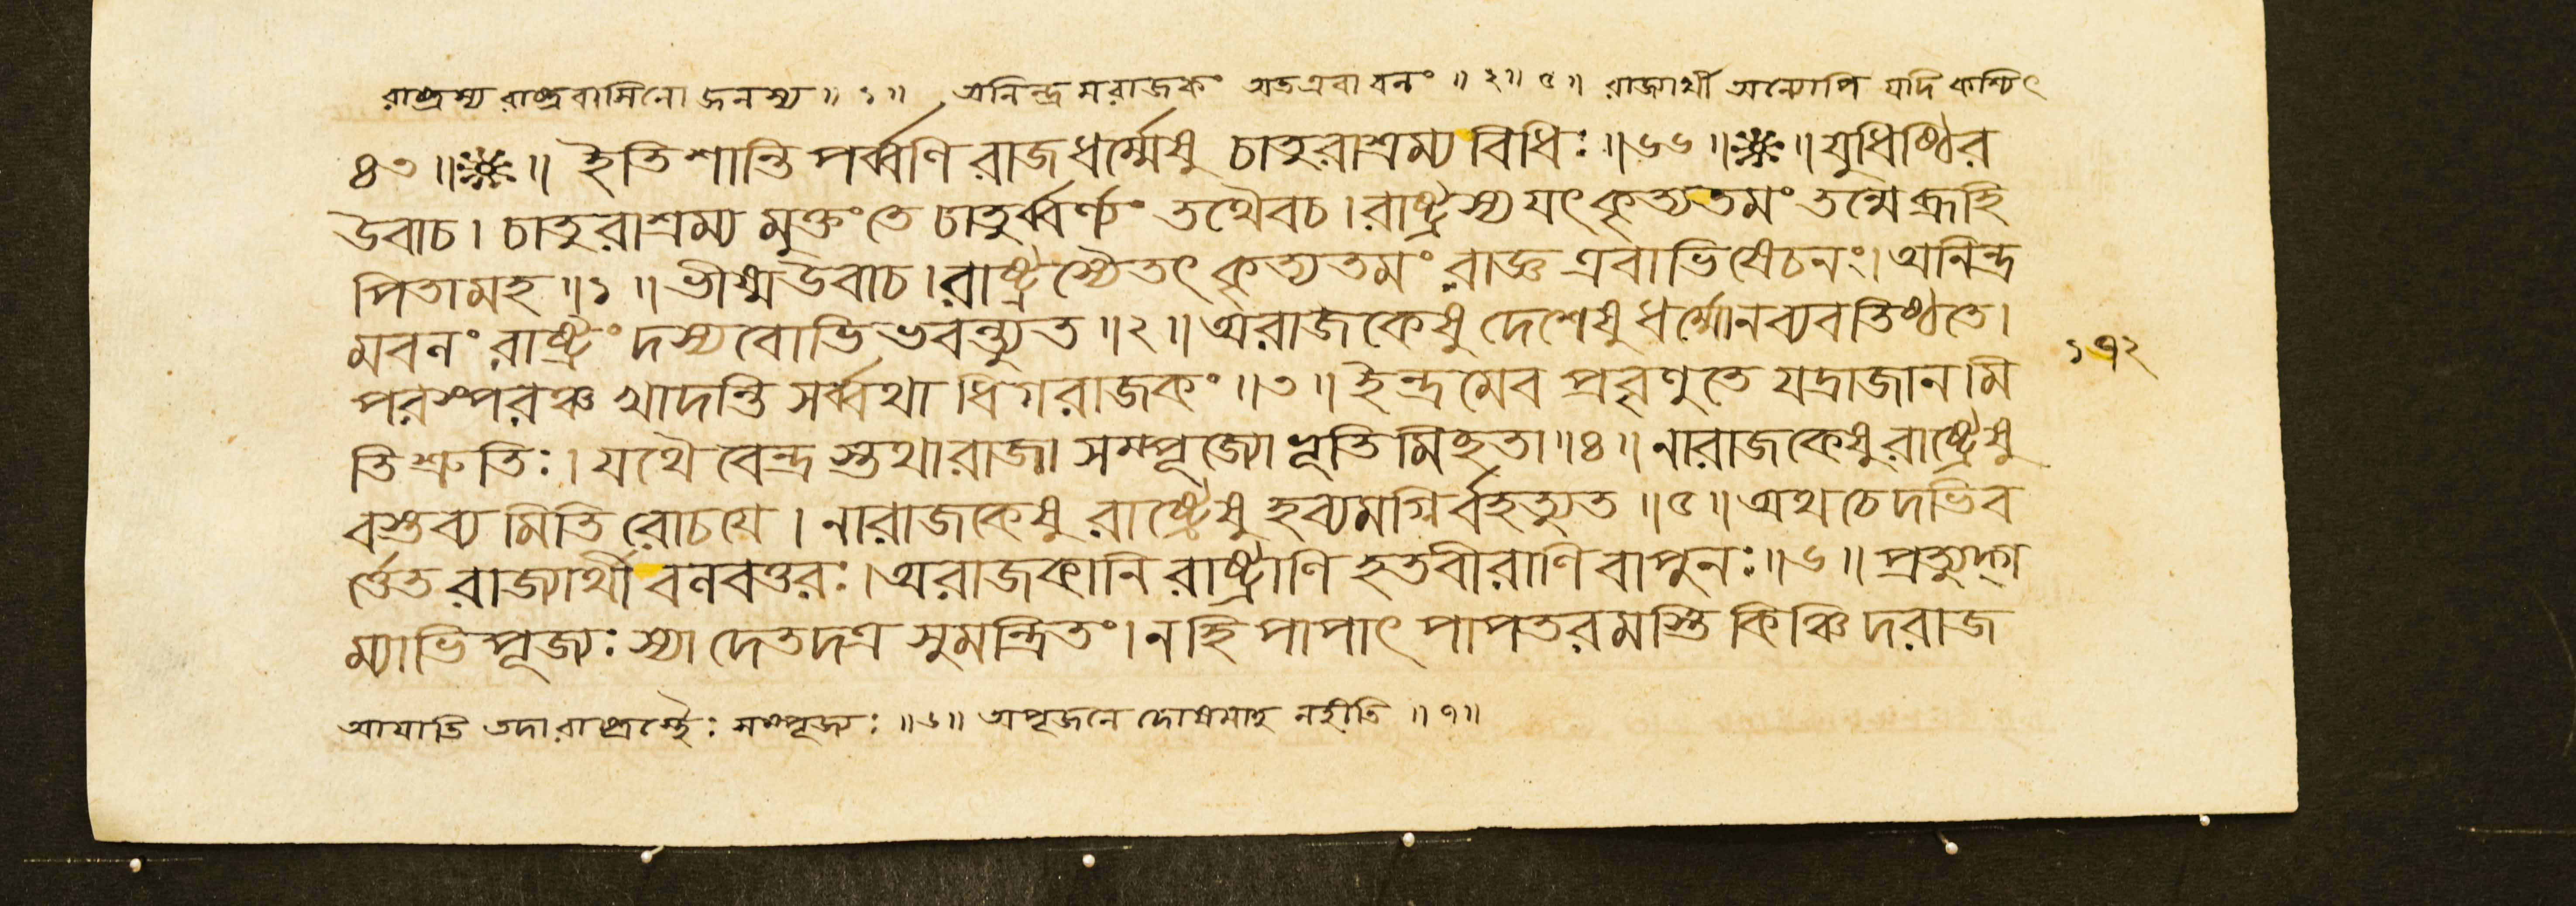 রাষ্ট্রস্য রাষ্ট্রবাসিনো জনস্য ॥ ১ ॥ অনিন্দ্রমরাজকং অতএবাবনং ॥ ২ ॥ ৫ ॥ রাজ্যার্থী অন্যোপি যদি কশ্চিৎ
৪৩ ॥ ॥ ইতি শান্তি পর্ব্বণি রাজধর্ম্মেষু চাতুরাশ্রম্য বিধিঃ ॥ ৬৬ ॥ ॥ যুধিষ্ঠির
উবাচ । চাতুরাশ্রম্য মুক্তং তে চাতুর্ব্বর্ণ্যং তথৈবচ । রাষ্ট্রস্য যৎ কৃত্যতমং তন্মে ব্রূহি
পিতামহ ॥ ১ ॥ ভীষ্ম উবাচ । রাষ্ট্রস্যৈতৎ কৃত্যতমং রাজ্ঞ এবাভিষেচনং । অনিন্দ্র
মবনং রাষ্ট্রং দস্যবোভিভবন্ত্যুত ॥ ২ ॥ অরাজকেষু দেশেষু ধর্ম্মোনব্যবতিষ্ঠতে ।
পরস্পরঞ্চ খাদন্তি সর্ব্বথা ধিগরাজকং ॥ ৩ ॥ ইন্দ্রমেব প্রবৃণুতে যদ্রাজানমি
তি শ্রুতিঃ । যথৈবেন্দ্র স্তথা রাজা সম্পূজ্যো ভূতিমিছতা ॥ ৪ ॥ নারাজকেষু রাষ্ট্রেষু
বস্তব্য মিতি রোচয়ে । নারাজকেষু রাষ্ট্রেষু হব্যমগ্নির্বহত্যুত ॥ ৫ ॥ অথ চেদভিব
র্ত্তেত রাজ্যার্থী বনবত্তরঃ । অরাজকানি রাষ্ট্রাণি হতবীরাণি বা পুনঃ ॥ ৬ ॥ প্রত্যুদ্গ
ম্যাভিপূজ্যঃ স্যা দেতদত্র সুমন্ত্রিতং । নহি পাপাৎ পাপতরমস্তি কিঞ্চিদরাজ
১৭২
আয়াতি তদা রাষ্ট্রস্থৈঃ সম্পূজ্যঃ ॥ ৬ ॥ অপূজনে দোষমাহ নহীতি ॥ ৭ ॥